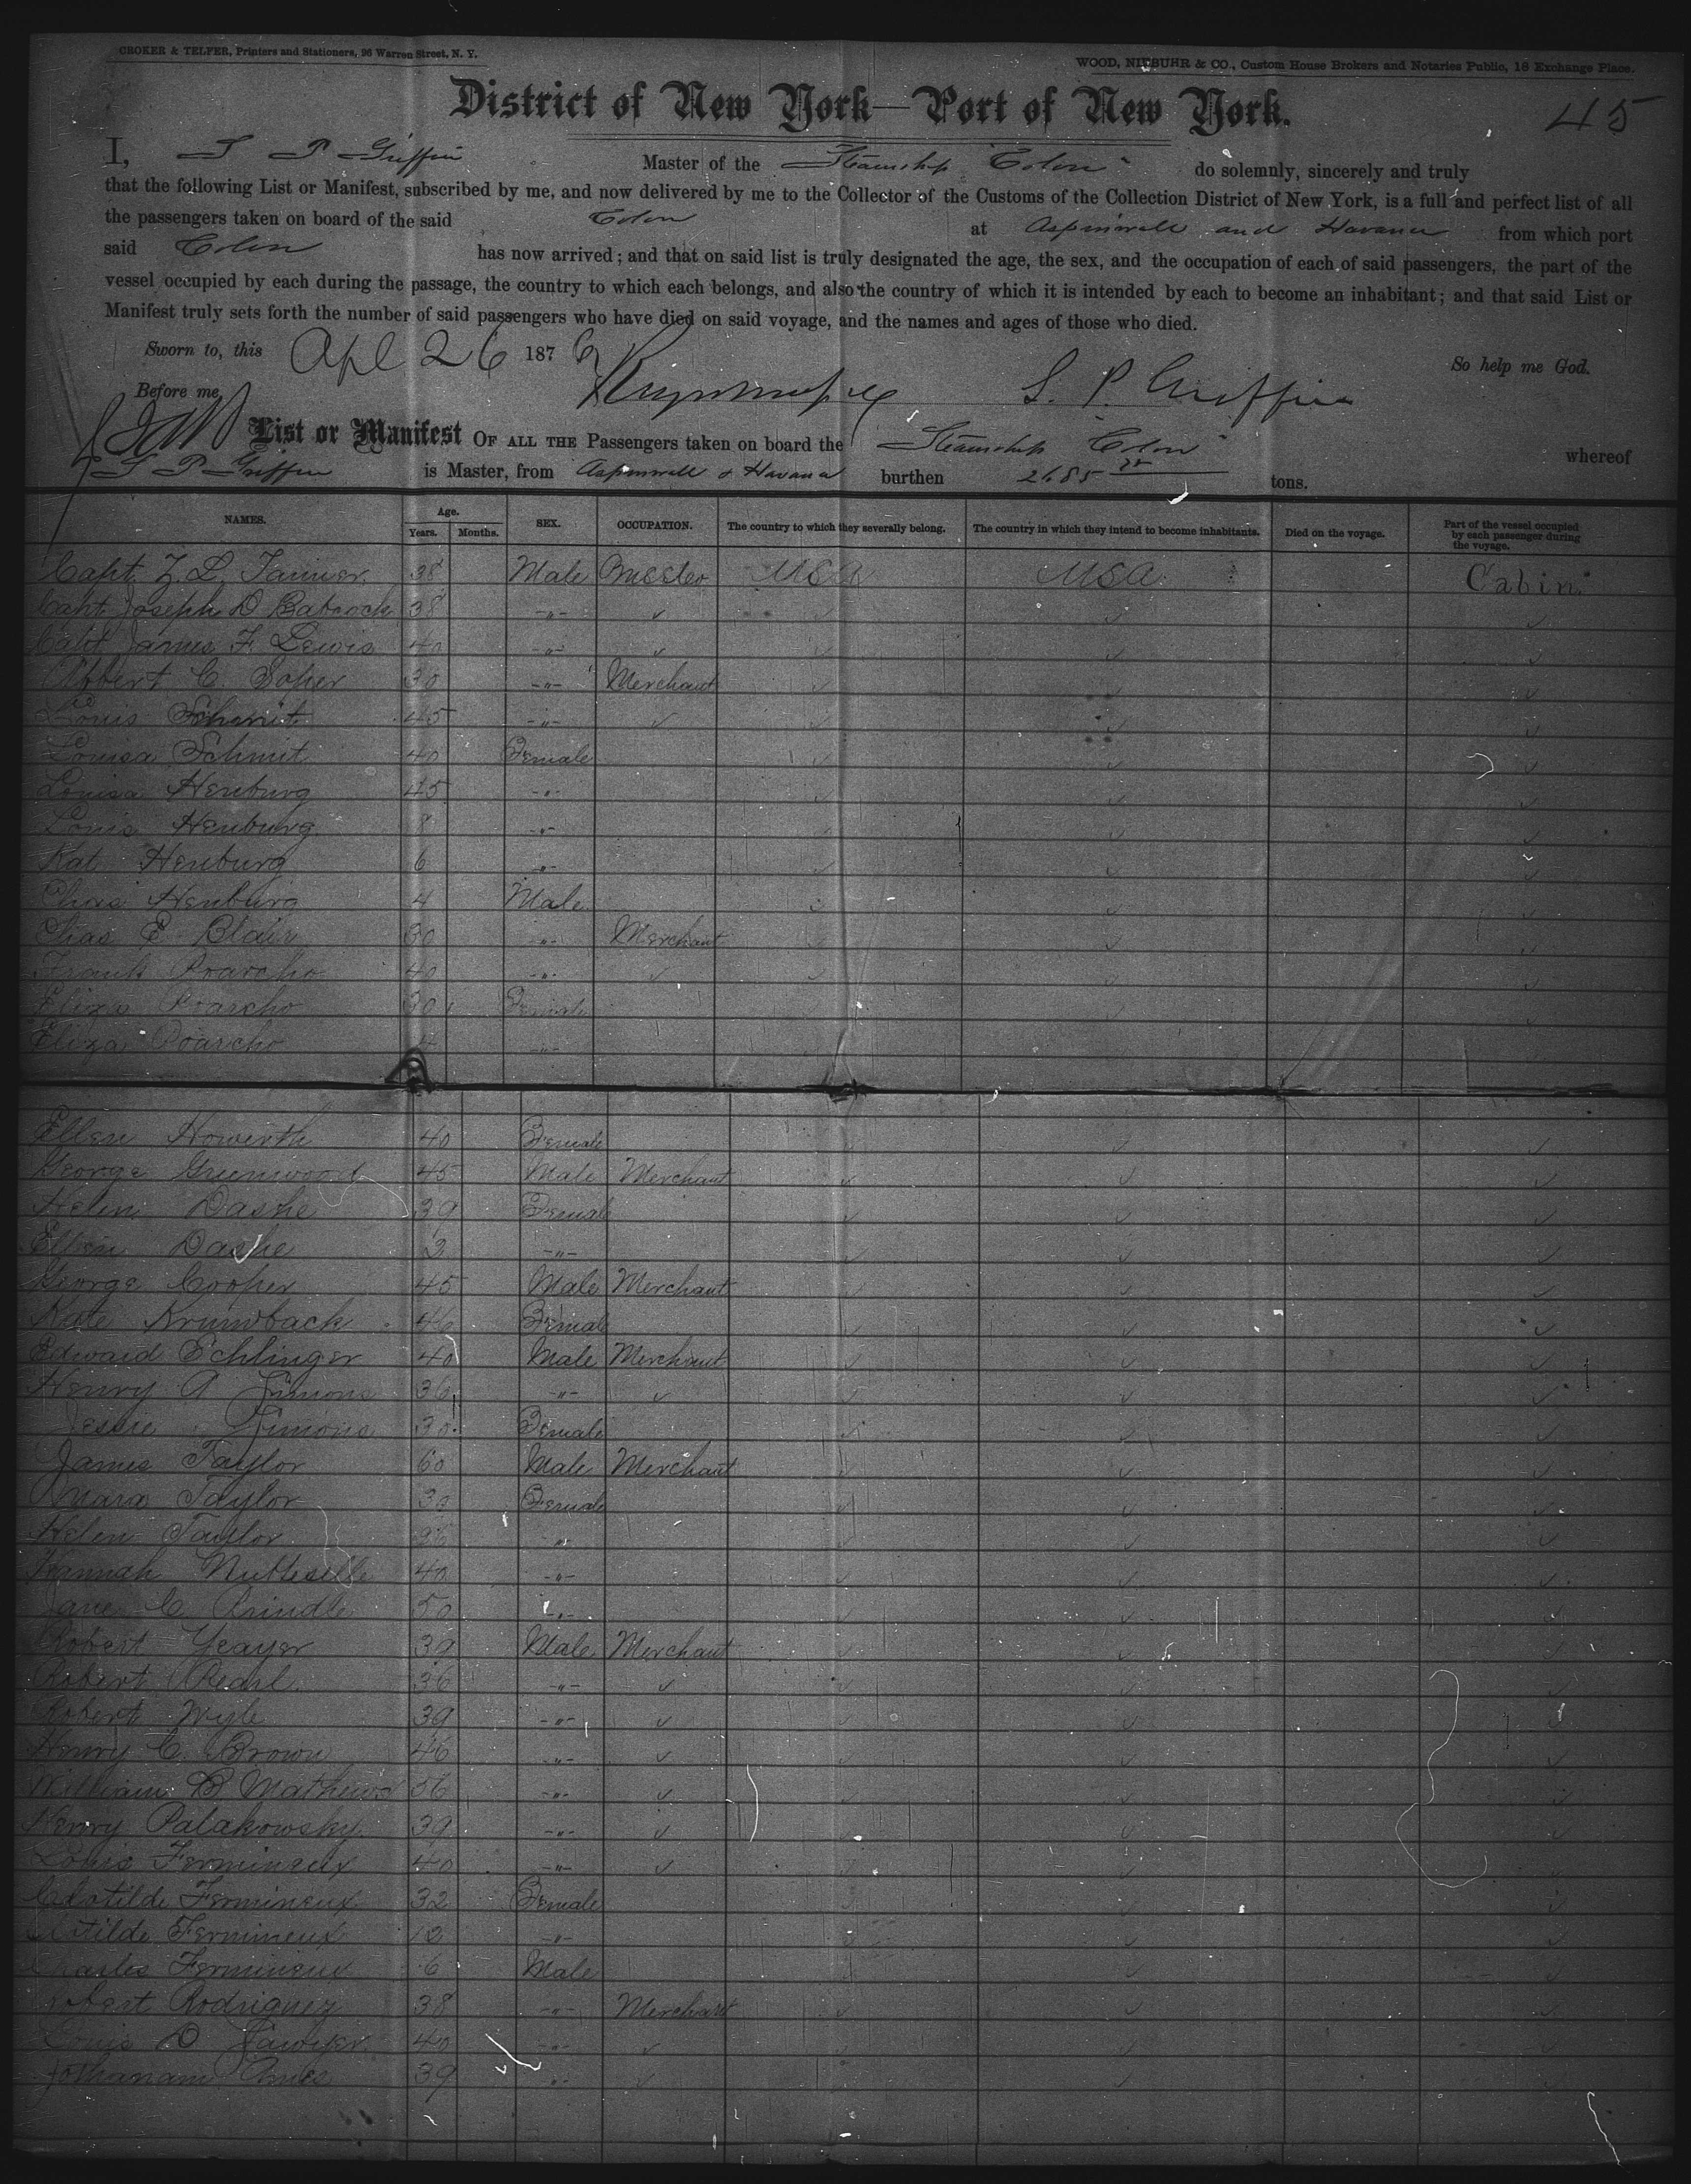 CROKER & TELFER, Printers and Stationers, 96 Warren Street, N. Y.
WOOD, NIEBUHR & CO., Custom House Brokers and Notaries Public, 18 Exchange Place.
District of New York—Port of New York.
45
I, S P Griffin Master of the Steamship "Colon" do solemnly, sincerely and truly
that the following List or Manifest, subscribed by me, and now delivered by me to the Collector of the Customs of the Collection District of New York, is a full and perfect list of all
the passengers taken on board of the said Colon at Aspinwall and Havana from which port
said Colon has now arrived; and that on said list is truly designated the age, the sex, and the occupation of each of said passengers, the part of the
vessel occupied by each during the passage, the country to which each belongs, and also the country of which it is intended by each to become an inhabitant; and that said List or
Manifest truly sets forth the number of said passengers who have died on said voyage, and the names and ages of those who died.
Sworn to, this Apl 26 1876 So help me God.
Before me, S. P. Griffin
List or Manifest OF ALL THE Passengers taken on board the Steamship "Colon" whereof
S P Griffin is Master, from Aspinwall & Havana burthen 2685 tons.
NAMES. Age. Years. Months. SEX. OCCUPATION. The country to which they severally belong. The country in which they intend to become inhabitants. Died on the voyage. Part of the vessel occupied by each passenger during the voyage.
Capt Z. L. Tanner 38 Male USA USA Cabin
Capt Joseph D Babcock 38 -"- ✓
Capt James F. Lewis 40 -"- ✓
Albert C. Soper 30 -"- Merchant
Louis Schmit 45 -"- ✓
Louisa Schmit 40 Female
Louisa Henburg 45 -"-
Louis Henburg 8 -"-
Kat Henburg 6 -"-
Chas Henburg 4 Male
Chas E Blair 30 -"- Merchant
Frank Poarcho 40 -"- ✓
Eliza Poarcho 30 Female
Eliza Poarcho -"-
Ellen Howerth 40 Female
George Greenwood 45 Male Merchant
Helen Dashe 39 Female
Ellen Dashe 3 -"-
George Cooper 45 Male Merchant
Kate Krumback 46 Female
Edward Echlinger 40 Male Merchant
Henry A Simons 36 -"- ✓
Jessie Simons 30 Female
James Taylor 60 Male Merchant
Taylor 30 Female
Helen Taylor 36 -"-
Hannah 40 -"-
Jane C. Prindle 50 -"-
Robert Yeayer 39 Male Merchant
Robert Pearl 36 -"- ✓
Robert Wyle 39 -"- ✓
Henry C. Brown 46 -"- ✓
William B Mathews 56 -"- ✓
Henry Palakowsky 39 -"- ✓
Louis Fermineux 40 -"- ✓
Clotilde Fermineux 32 Female
Clotilde Fermineux 12 -"-
Charles Fermineux 6 Male
Robert Rodriguez 38 -"- Merchant
Louis D Sawyer 40 -"- ✓
39 -"- ✓